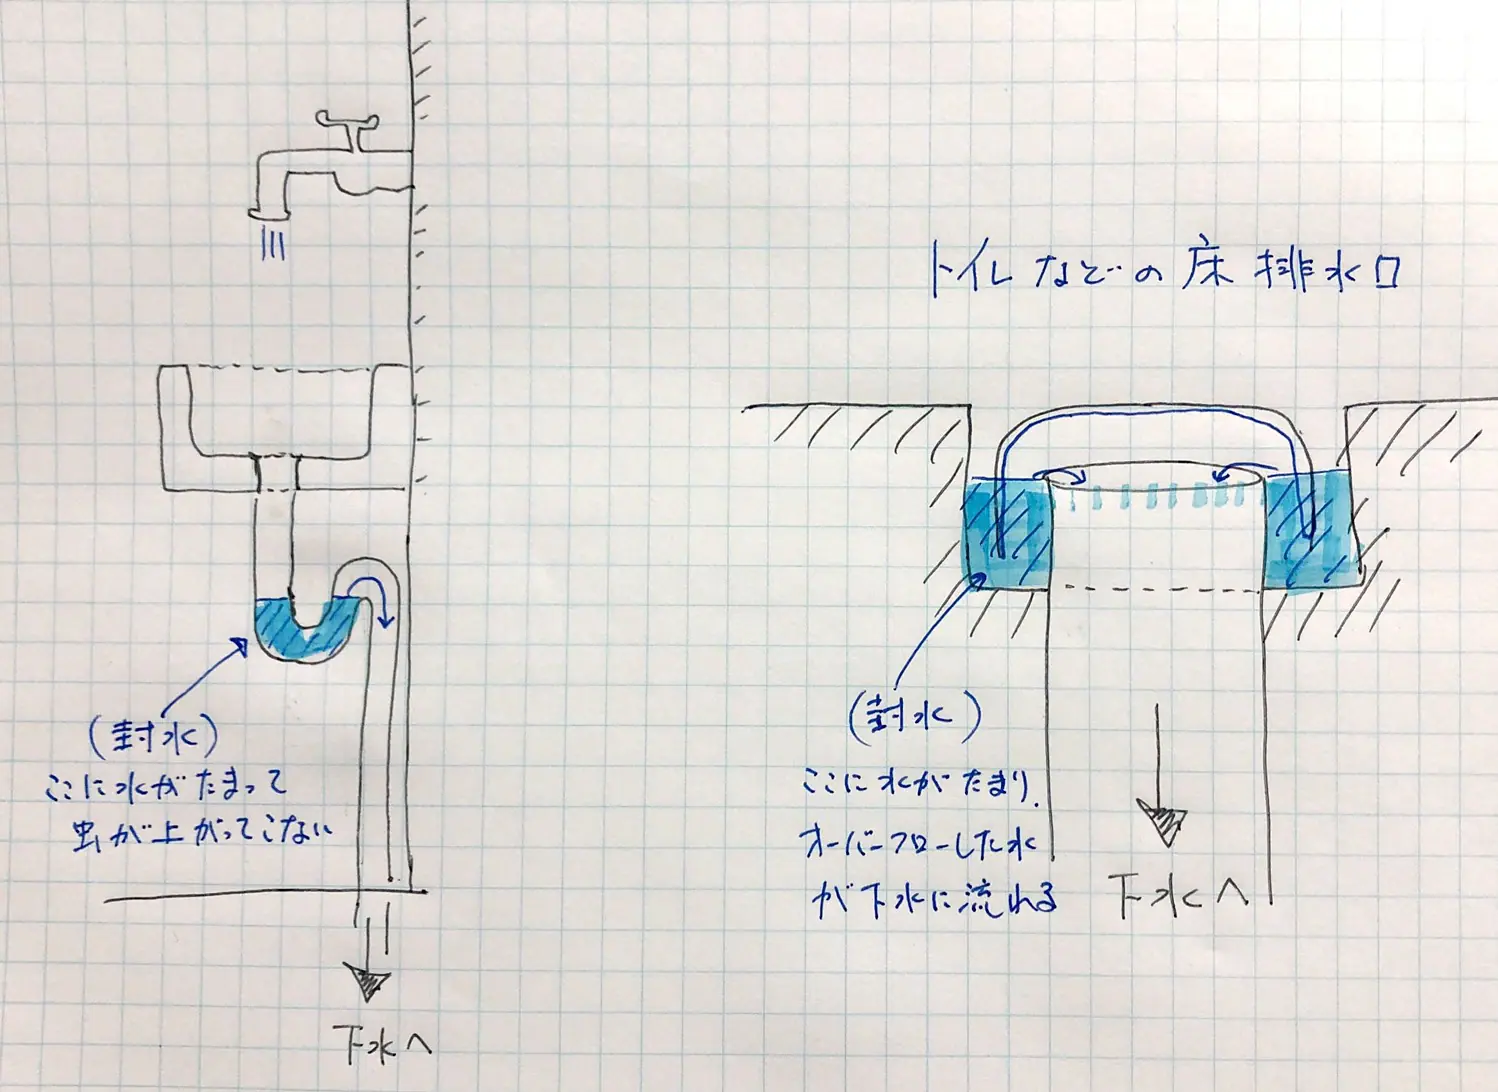 (封水)
ここに水がたまって
虫が上がってこない
下水へ
トイレなどの床排水口
(封水)
ここに水がたまり、
オーバーフローした水
が下水に流れる
下水へ